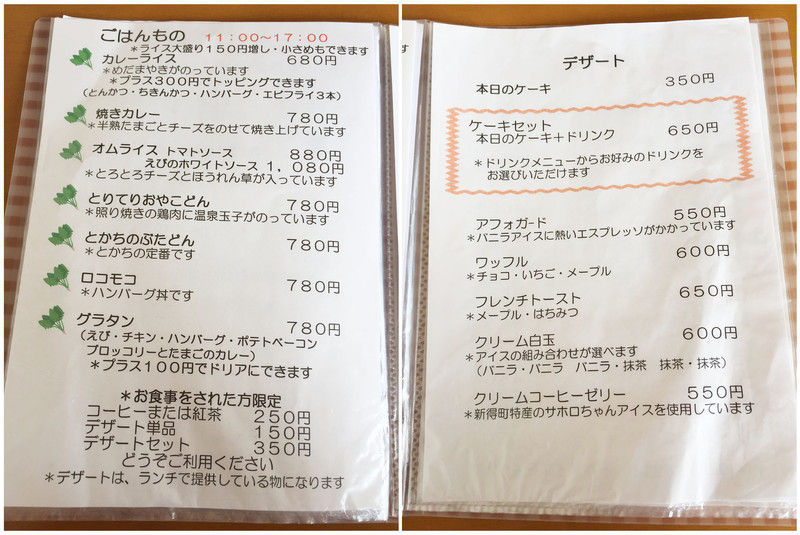 ごはんもの 11:00~17:00
*ライス大盛り150円増し・小さめもできます
カレーライス 680円
*めだまやきがのっています
*プラス300円でトッピングできます
(とんかつ・ちきんかつ・ハンバーグ・エビフライ3本)
焼きカレー 780円
*半熟たまごとチーズをのせて焼き上げています
オムライス トマトソース 880円
えびのホワイトソース 1,080円
*とろとろチーズとほうれん草が入っています
とりてりおやこどん 780円
*照り焼きの鶏肉に温泉玉子がのっています
とかちのぶたどん 780円
*とかちの定番です
ロコモコ 780円
*ハンバーグ丼です
グラタン 780円
(えび・チキン・ハンバーグ・ポテトベーコン
ブロッコリーとたまごのカレー)
*プラス100円でドリアにできます
*お食事をされた方限定
コーヒーまたは紅茶 250円
デザート単品 150円
デザートセット 350円
どうぞご利用ください
*デザートは、ランチで提供している物になります
デザート
本日のケーキ 350円
ケーキセット
本日のケーキ+ドリンク 650円
*ドリンクメニューからお好みのドリンクを
お選びいただけます
アフォガード 550円
*バニラアイスに熱いエスプレッソがかかっています
ワッフル 600円
*チョコ・いちご・メープル
フレンチトースト 650円
*メープル・はちみつ
クリーム白玉 600円
*アイスの組み合わせが選べます
(バニラ・バニラ バニラ・抹茶 抹茶・抹茶)
クリームコーヒーゼリー 550円
*新得町特産のサホロちゃんアイスを使用しています